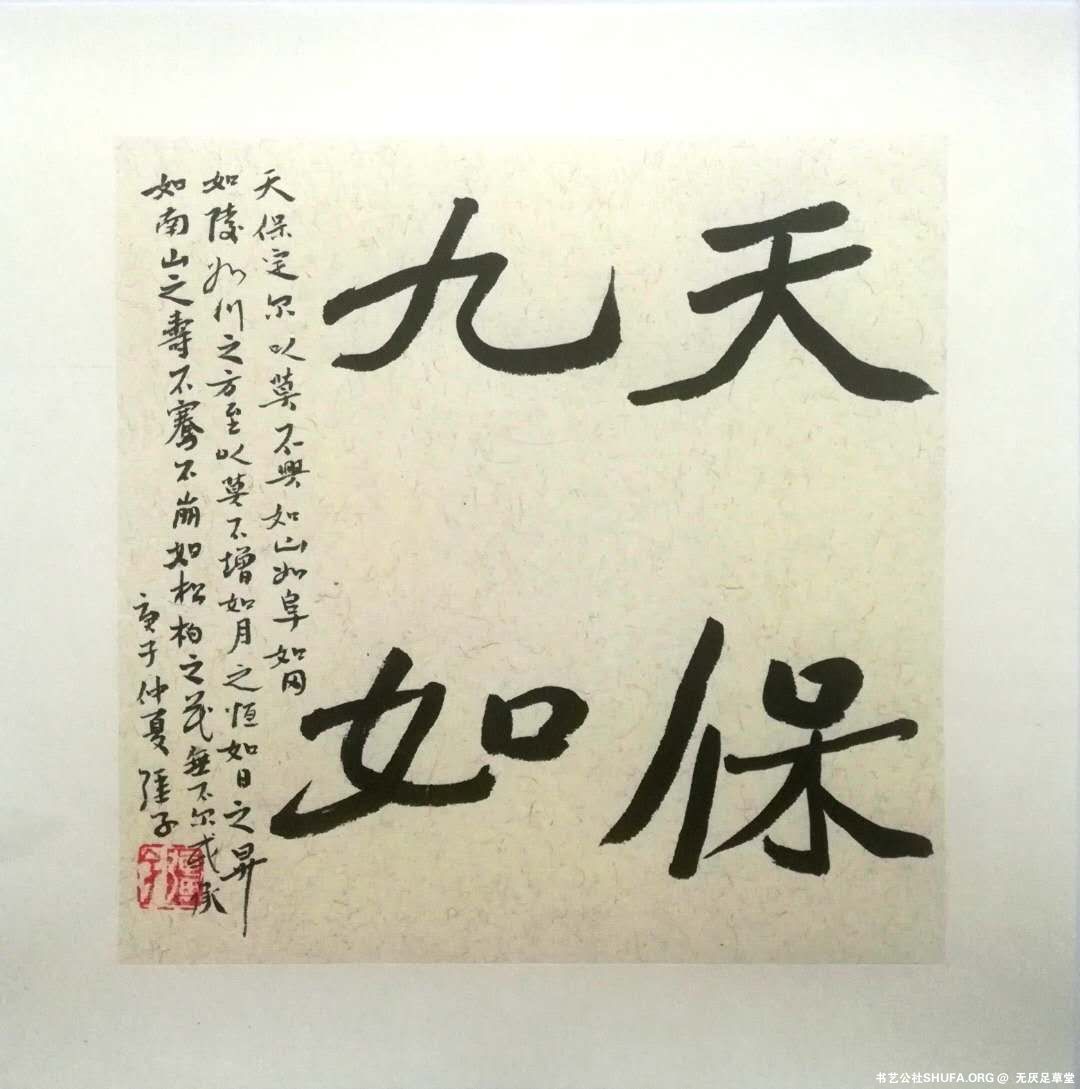 天保
九如
天保定尔以莫不興如山如阜如冈
如陵如川之方至以莫不增如月之恒如日之昇
如南山之壽不騫不崩如松柏之茂無不尔或承
庚子仲夏 子
书艺公社SHUFA.ORG @ 无厌足草堂